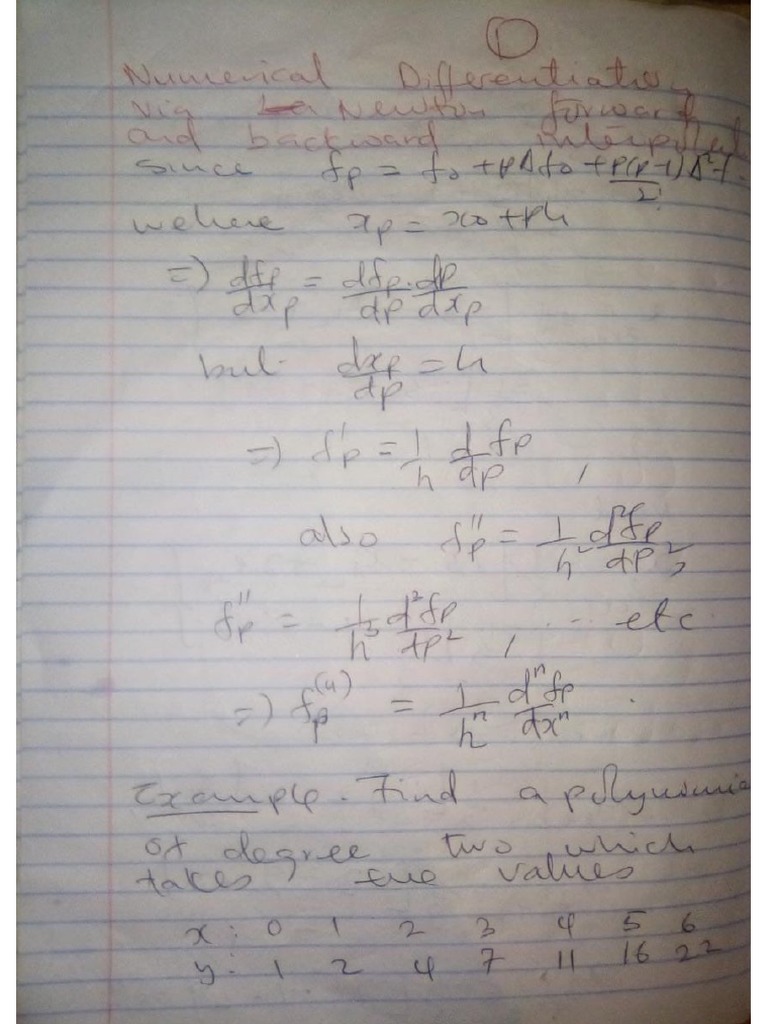 1
Numerical Differentiation
via a Newton forward
and backward interpolat
since fp = f0 + pΔf0 + p(p-1)Δ²f / 2!
wehere xp = x0 + ph
=> dfp/dxp = dfp/dp . dp/dxp
but dxp/dp = h
=> f'p = 1/h d/dp fp ,
also f''p = 1/h² d²fp/dp² ,
f''p = 1/h³ d³fp/dp² , ... etc
=> fp^(n) = 1/h^n d^n fp/dx^n .
Example. Find a polynomia
of degree two which
takes the values
x : 0 1 2 3 4 5 6
y : 1 2 4 7 11 16 22